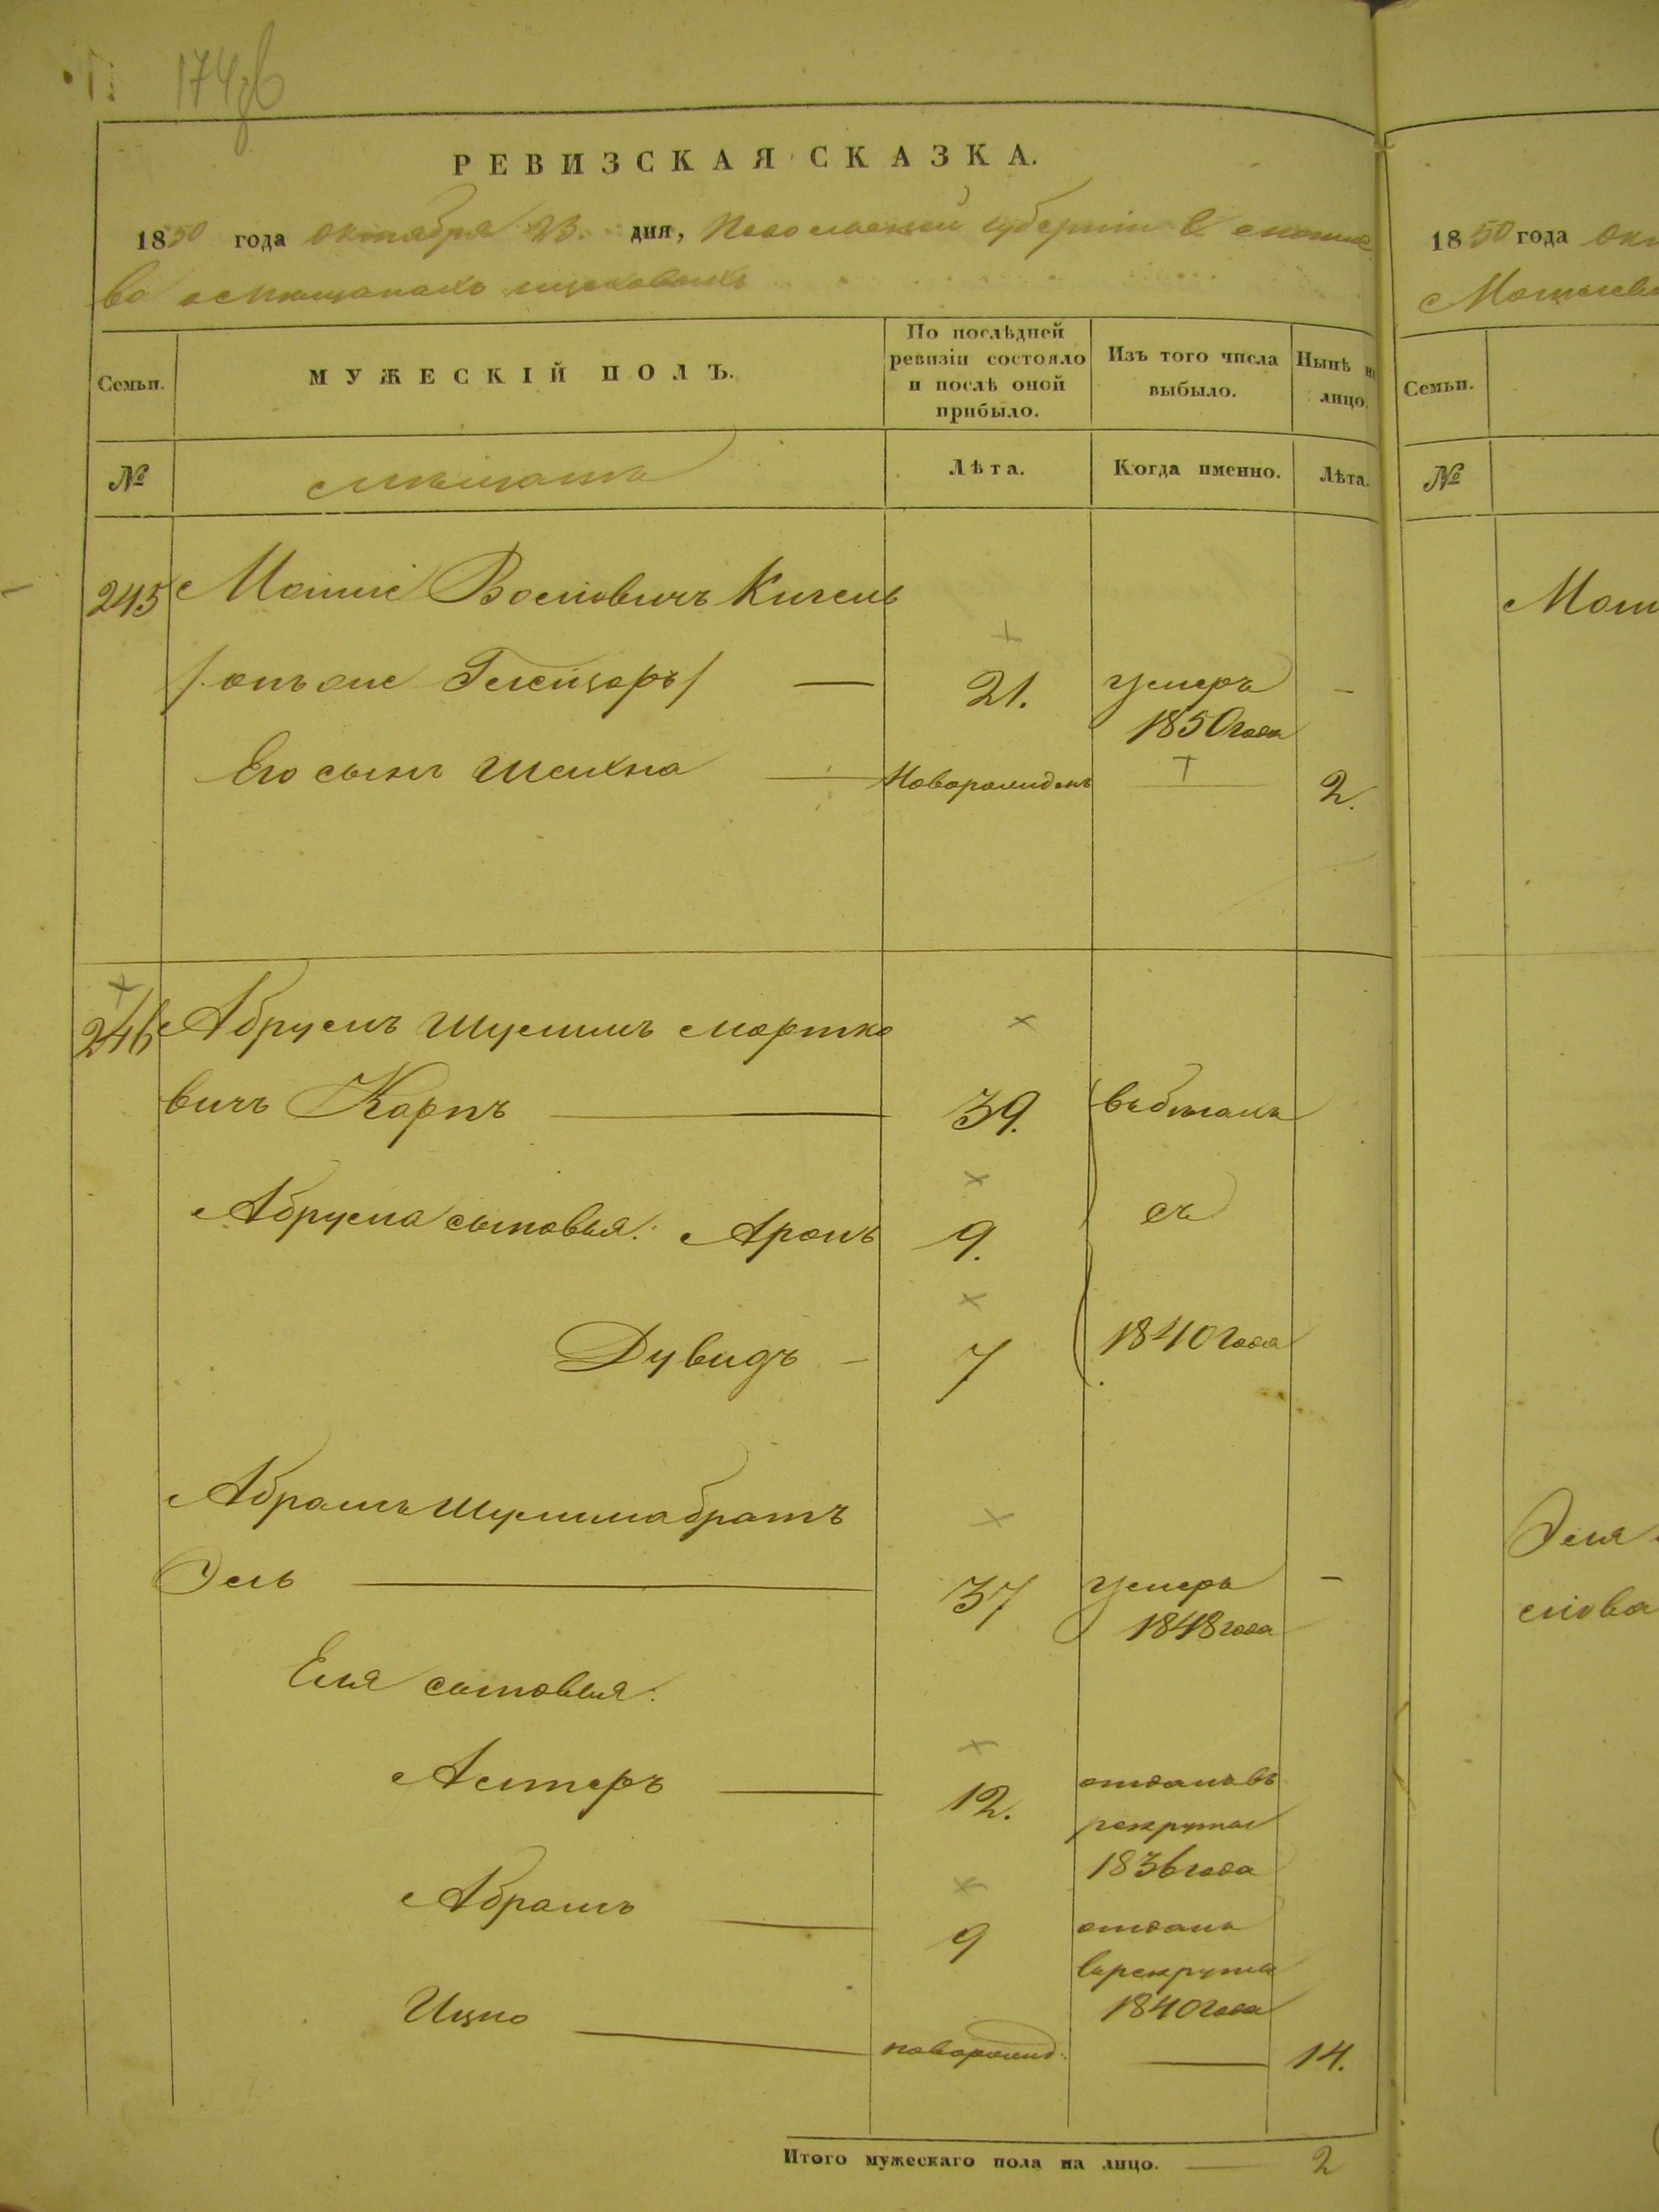 174об
РЕВИЗСКАЯ СКАЗКА.
1850 года октября 23. дня, губерніи в
Семьи.
МУЖЕСКІЙ ПОЛЪ.
По послѣдней ревизіи состояло и послѣ оной прибыло.
Изъ того числа выбыло.
Нынѣ на лицо.
№
мѣщанъ
Лѣта.
Когда именно.
Лѣта.
245 Кигель
/онъ же / — 21. умеръ —
1850 года
Его сынъ Шахна — Новорожденъ — 2.
246 Абрумъ Шулимъ Мортко
вичъ Карпъ — 39. въ бегахъ
Абрума сыновья: Аронъ 9. съ
Дувидъ — 7 1840 года
Абрамъ Шулима братъ
Эль — 37 умеръ —
1848 года
Еля сыновья:
Лейзеръ — 12. отданъ въ
рекруты
1836 года
Абрамъ — 9 отданъ
в рекруты
1840 года
Ицко — новорожд: — 14.
Итого мужескаго пола на лицо. — 2
1850 года окт
Семьи.
№
Эля